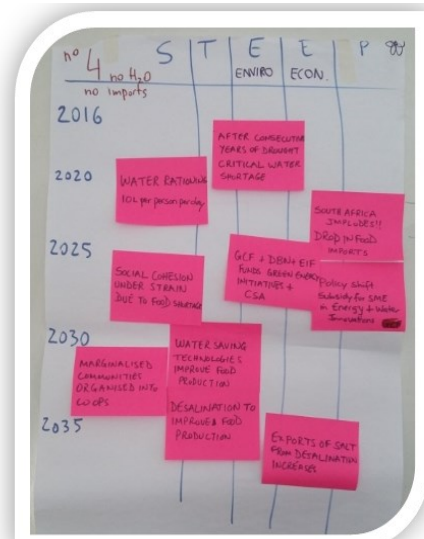 no 4 no H2O
no imports
S T E E P
ENVIRO ECON.
2016
AFTER CONSECUTIVE
YEARS OF DROUGHT
CRITICAL WATER
SHORTAGE
2020
WATER RATIONING
10L per person per day
SOUTH AFRICA
IMPLODES!!
DROP IN FOOD
IMPORTS
2025
SOCIAL COHESION
UNDER STRAIN
DUE TO FOOD SHORTAGE
GCF + DBN + EIF
FUNDS GREEN ENERGY
INITIATIVES +
CSA
Policy Shift
Subsidy for SME
in Energy + Water
Innovations
2030
WATER SAVING
TECHNOLOGIES
IMPROVE FOOD
PRODUCTION
DESALINATION TO
IMPROVE FOOD
PRODUCTION
MARGINALISED
COMMUNITIES
ORGANISED INTO
CO OPS
2035
EXPORTS OF SALT
FROM DESALINATION
INCREASES